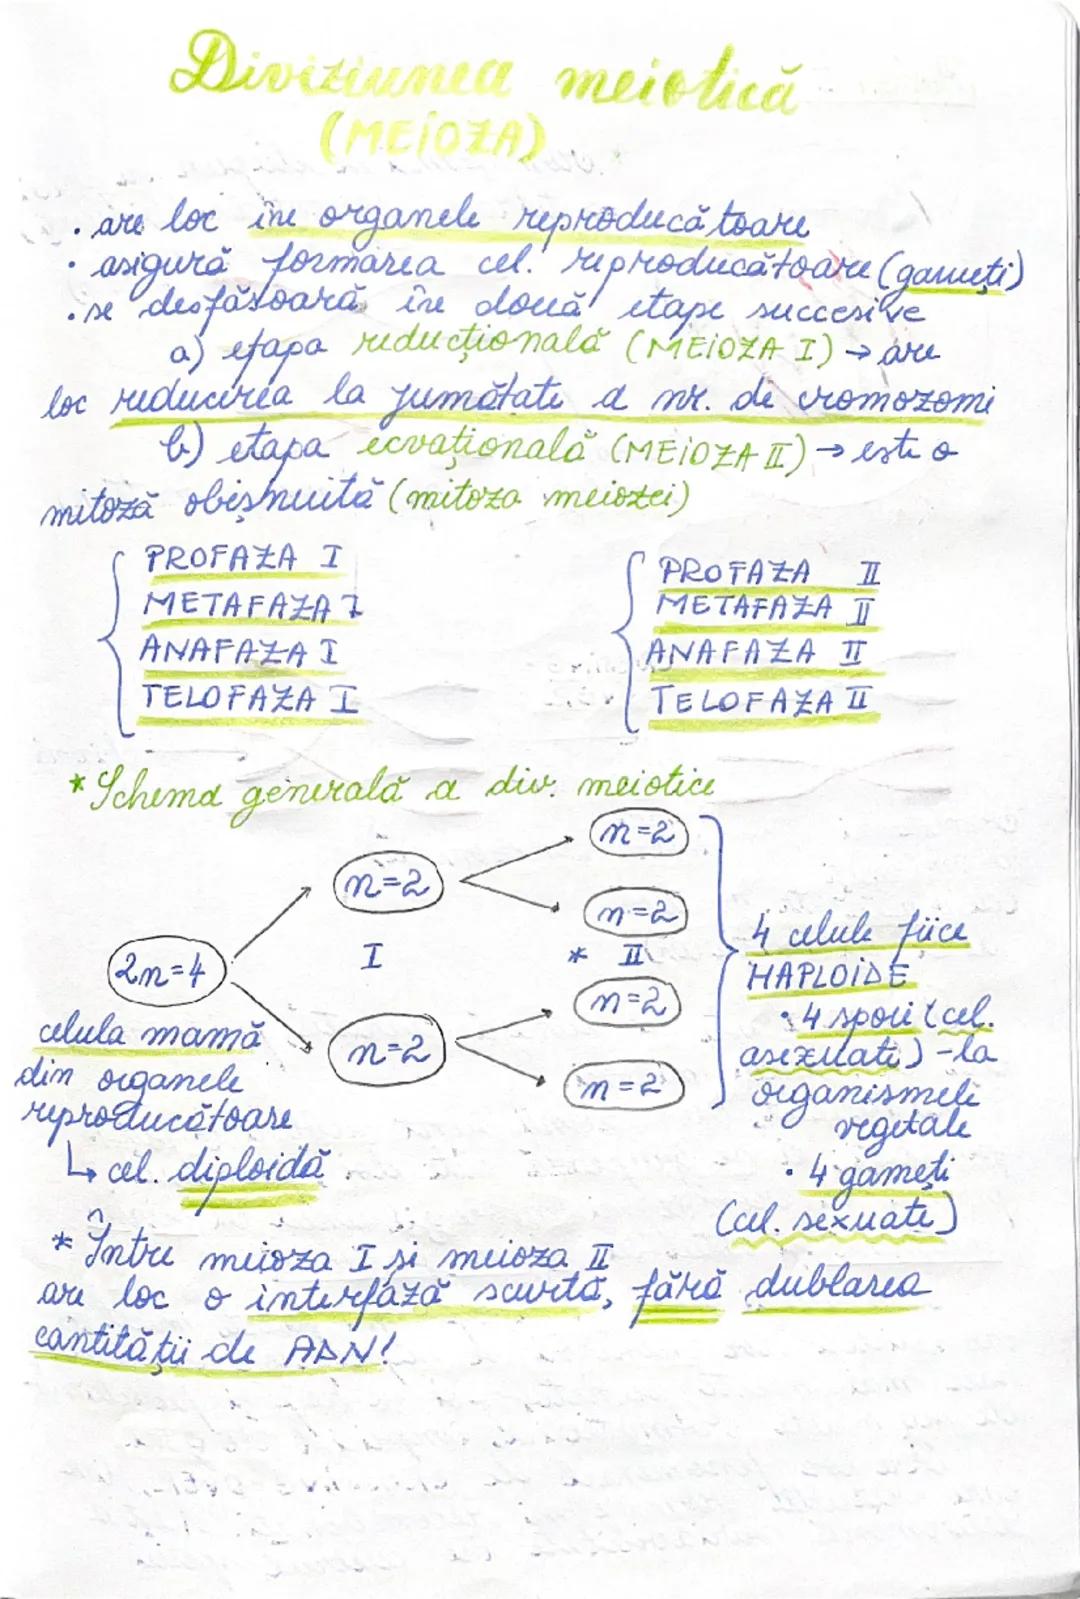 Diviziunea meiotică
(MEIOZA)
• are loc în organele reproducătoare
• asigură formarea cel. reproducătoare (gameți)
• se desfășoară în două etape succesive
a) etapa reducțională (MEIOZA I) → are
loc reducerea la jumătate a nr. de cromozomi
b) etapa ecvațională (MEIOZA II) → este o
mitoză obișnuită (mitoza meiozei)
PROFAZA I
METAFAZA I
ANAFAZA I
TELOFAZA I
PROFAZA II
METAFAZA II
ANAFAZA II
TELOFAZA II
* Schema generală a div. meiotice
2n=4
n=2
I
n=2
n=2
n=2
* II
n=2
n=2
celula mamă
din organele
reproducătoare
↳ cel. diploidă
4 celule fiice
HAPLOIDE
• 4 spori (cel.
asexuate) - la
organismele
vegetale
• 4 gameți
(cel. sexuate)
* Între meioza I și meioza II
are loc o interfază scurtă, fără dublarea
cantității de ADN!